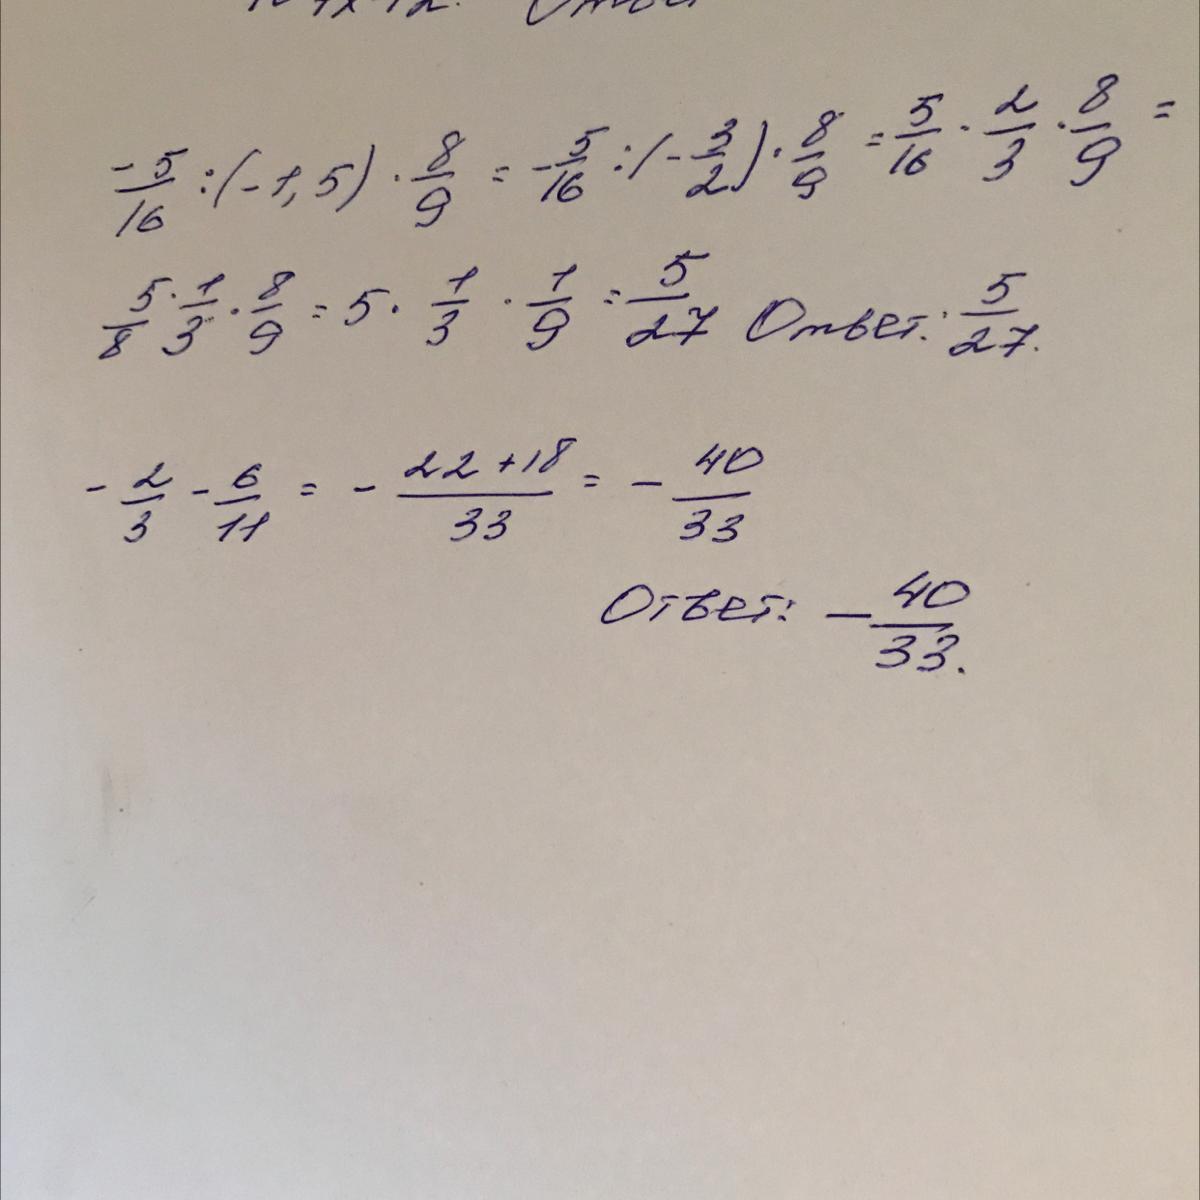 -5/16 : (-1,5) · 8/9 = -5/16 : (-3/2) · 8/9 = 5/16 · 2/3 · 8/9 =
5/8 · 1/3 · 8/9 = 5 · 1/3 · 1/9 = 5/27 Ответ: 5/27.
- 2/3 - 6/11 = - 22+18/33 = - 40/33
Ответ: - 40/33.